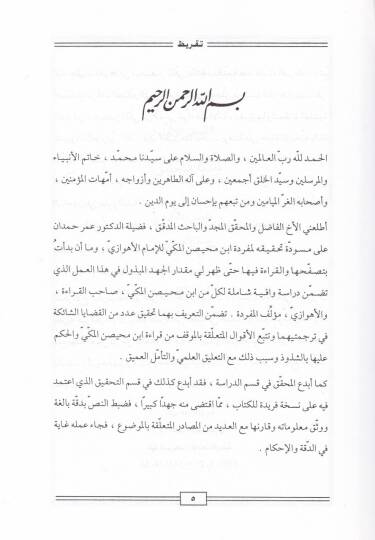 تقريظ
بسم الله الرحمن الرحيم
الحمد لله ربّ العالمين ، والصلاة والسلام على سيّدنا محمّد ، خاتم الأنبياء
والمرسلين وسيّد الخلق أجمعين ، وعلى آله الطاهرين وأزواجه ، أمّهات المؤمنين ،
وأصحابه الغرّ الميامين ومن تبعهم بإحسان إلى يوم الدين .
أطلعني الأخ الفاضل والمحقّق المجدّ والباحث المدقّق ، فضيلة الدكتور عمر حمدان
على مسودّة تحقيقه لمفردة ابن محيصن المكّيّ للإمام الأهوازيّ ، وما أن بدأتُ
بتصفّحها والقراءة فيها حتّى ظهر لي مقدار الجهد المبذول في هذا العمل الذي
تضمّن دراسة وافية شاملة لكلّ من ابن محيصن المكّيّ ، صاحب القراءة ،
والأهوازيّ ، مؤلّف المفردة . تضمّن التعريف بهما تحقيق عدد من القضايا الشائكة
في ترجمتيهما وتتبّع الأقوال المتعلّقة بالموقف من قراءة ابن محيصن المكّيّ والحكم
عليها بالشذوذ وسبب ذلك مع التعليق العلميّ والتأمّل العميق .
كما أبدع المحقّق في قسم الدراسة ، فقد أبدع كذلك في قسم التحقيق الذي اعتمد
فيه على نسخة فريدة للكتاب ، ممّا اقتضى منه جهدًا كبيرًا ، فضبط النصّ بدقّة بالغة
ووثّق معلوماته وقارنها مع العديد من المصادر المتعلّقة بالموضوع ، فجاء عمله غاية
في الدقّة والإحكام .
٥